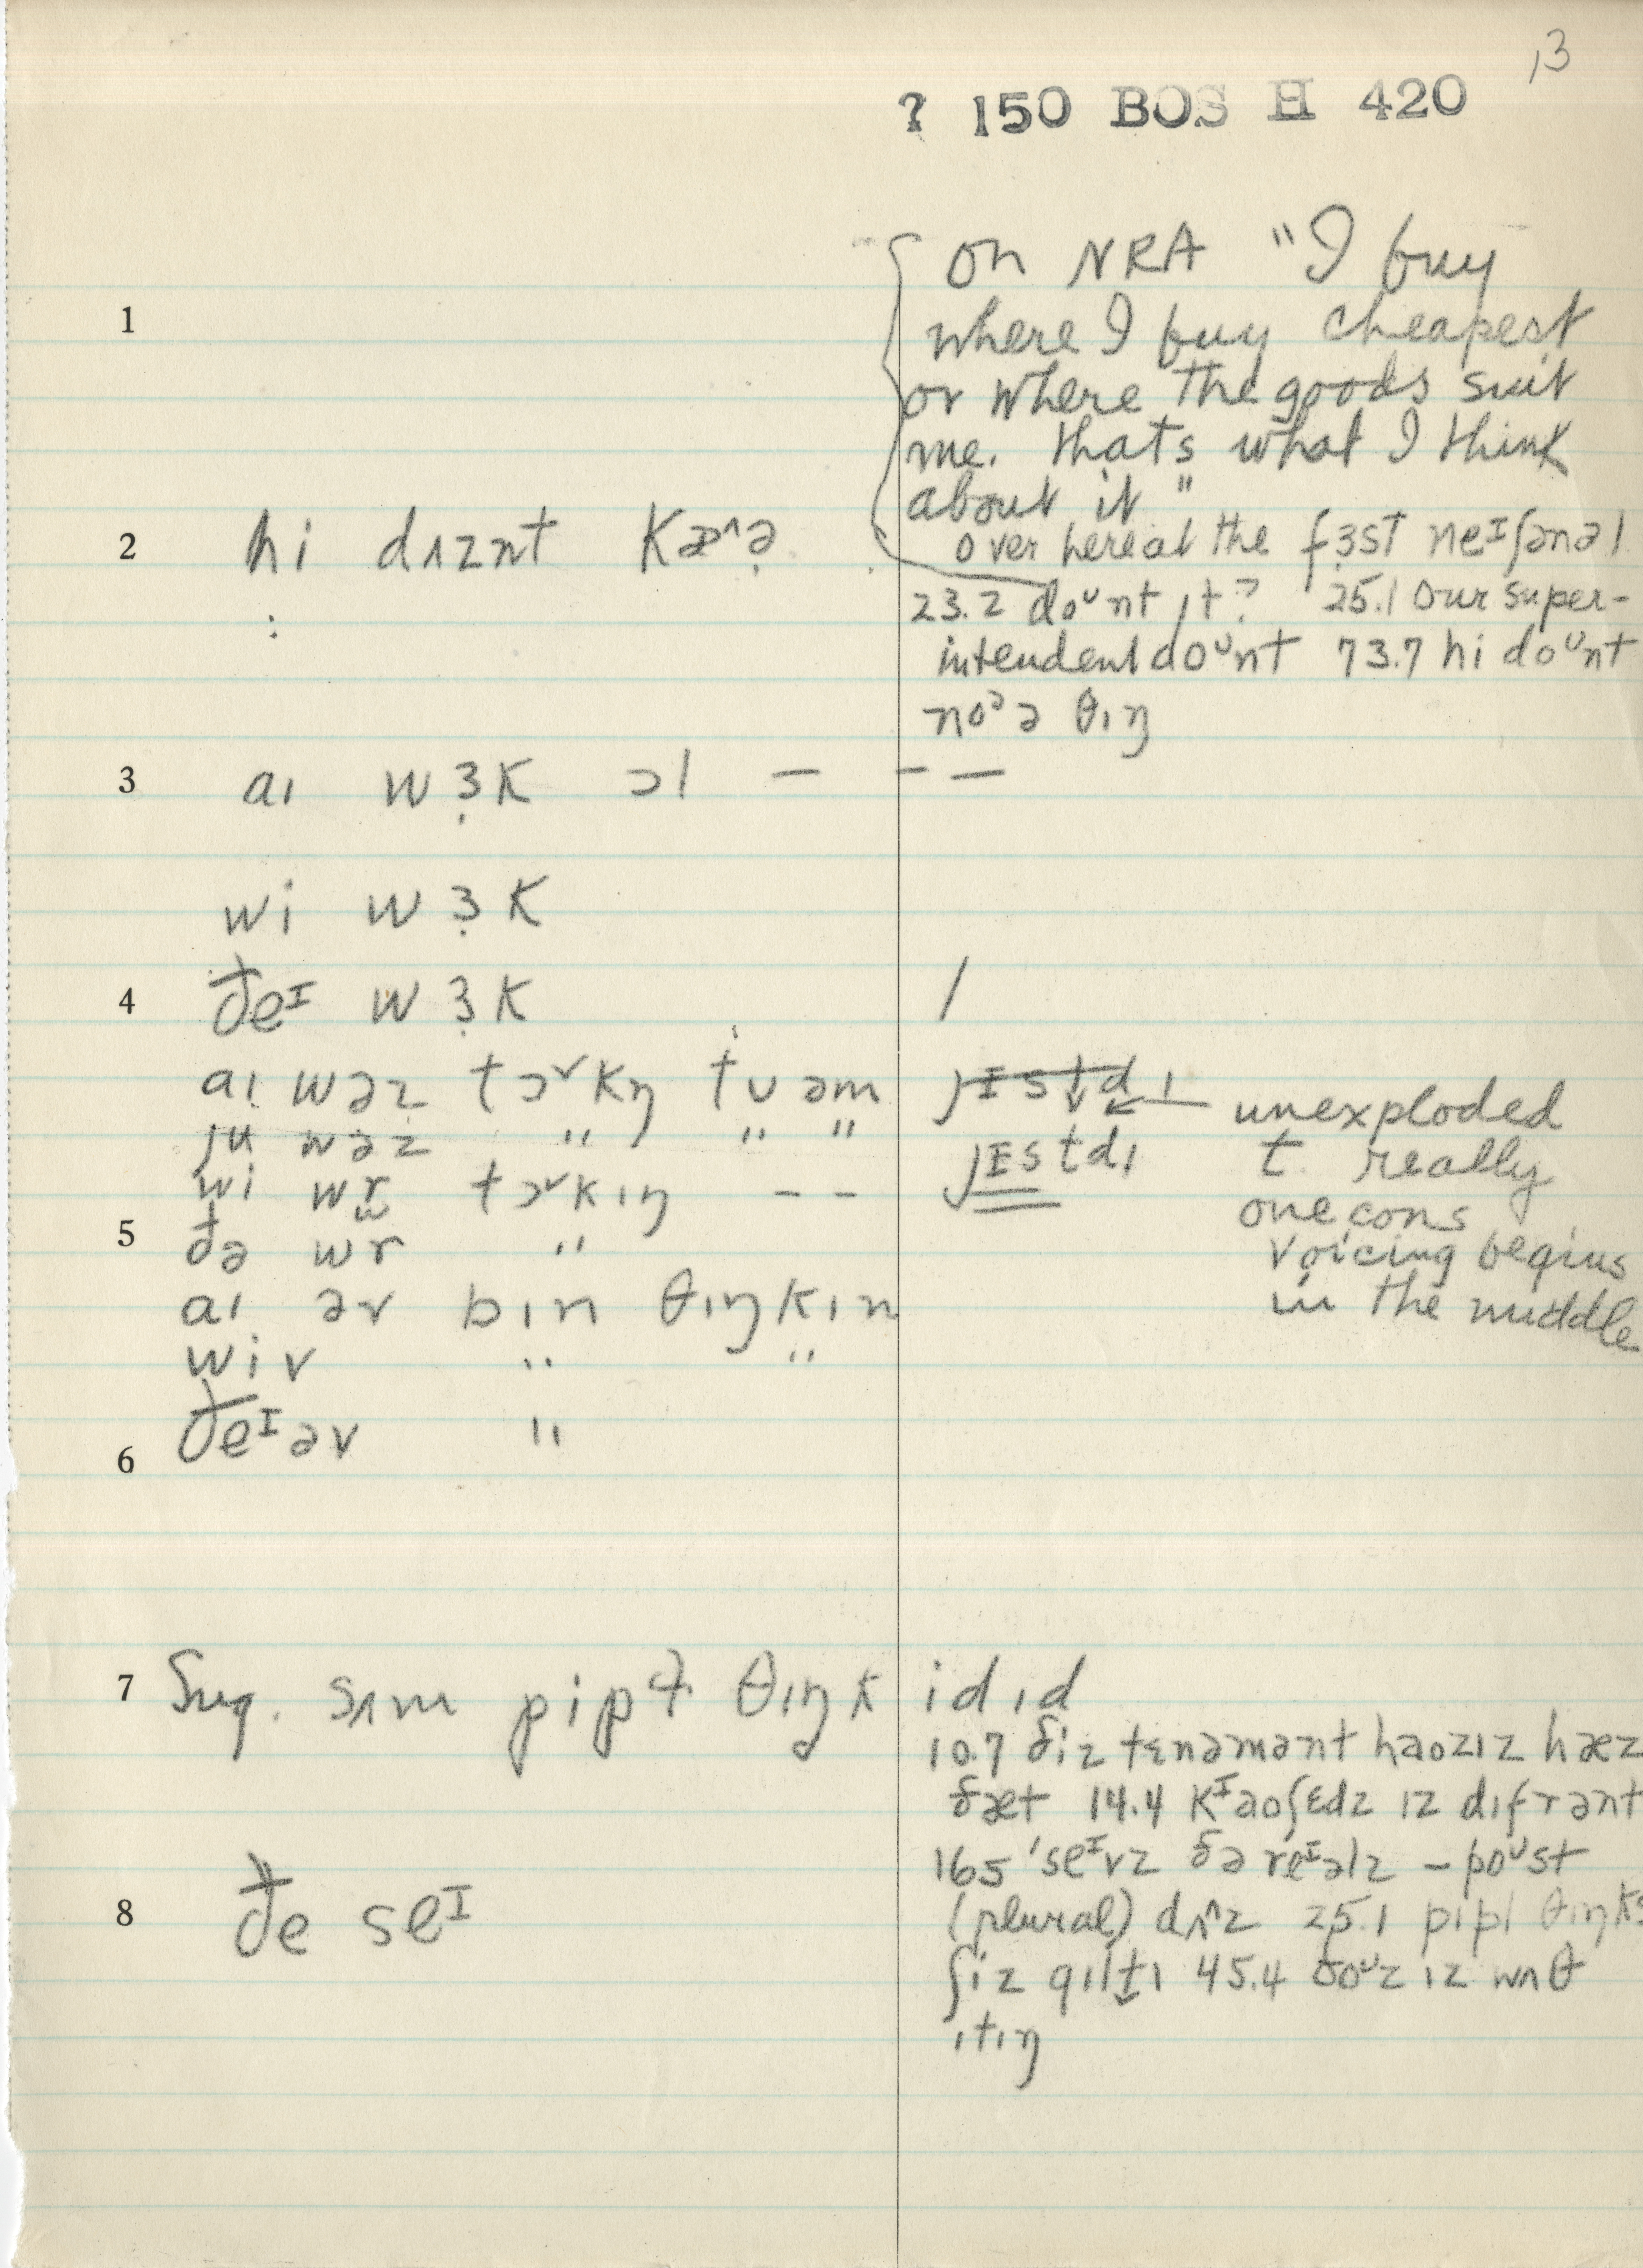 13
? 150 BOS H 420
on NRA "I buy
1
where I buy cheapest
or where the goods suit
me. thats what I think
about it"
2 hi dʌznt kæ^ə̣
over here at the fɜ̣st neᴵʃənəl
23.2 doᶷnt ɪt? 25.1 our super-
:
intendent doᶷnt 73.7 hi doᶷnt
noᵊ ə θɪŋ
3 aɪ wɜ̣k ɔl — — —
wi wɜ̣k
4 ðeᴵ wɜ̣k /
aɪ wəz tɔ˅kŋ tʊ əm jɪstdɪ unexploded
ju wəz " " " jɪstdɪ t really
wi wr tɔ˅kɪŋ – – one cons
5 ðə wr " voicing begins
aɪ əv bɪn θɪŋkɪn in the middle
wiv " "
6 ðeᴵ əv "
7 Sug. sʌm pipɫ θɪŋk i dɪd
10.7 ðiz tɛnəmənt haʊzɪz hæz
ðæt 14.4 kᴵaoʃɛdz ɪz dɪfrənt
165 'seᴵvz ðə reᴵəlz – poᶷst
8 ðe seᴵ
(plural) dʌ^z 25.1 pipl θɪŋks
ʃiz gɪltɪ 45.4 ðoᶷz ɪz wʌθ
ɪtɪŋ